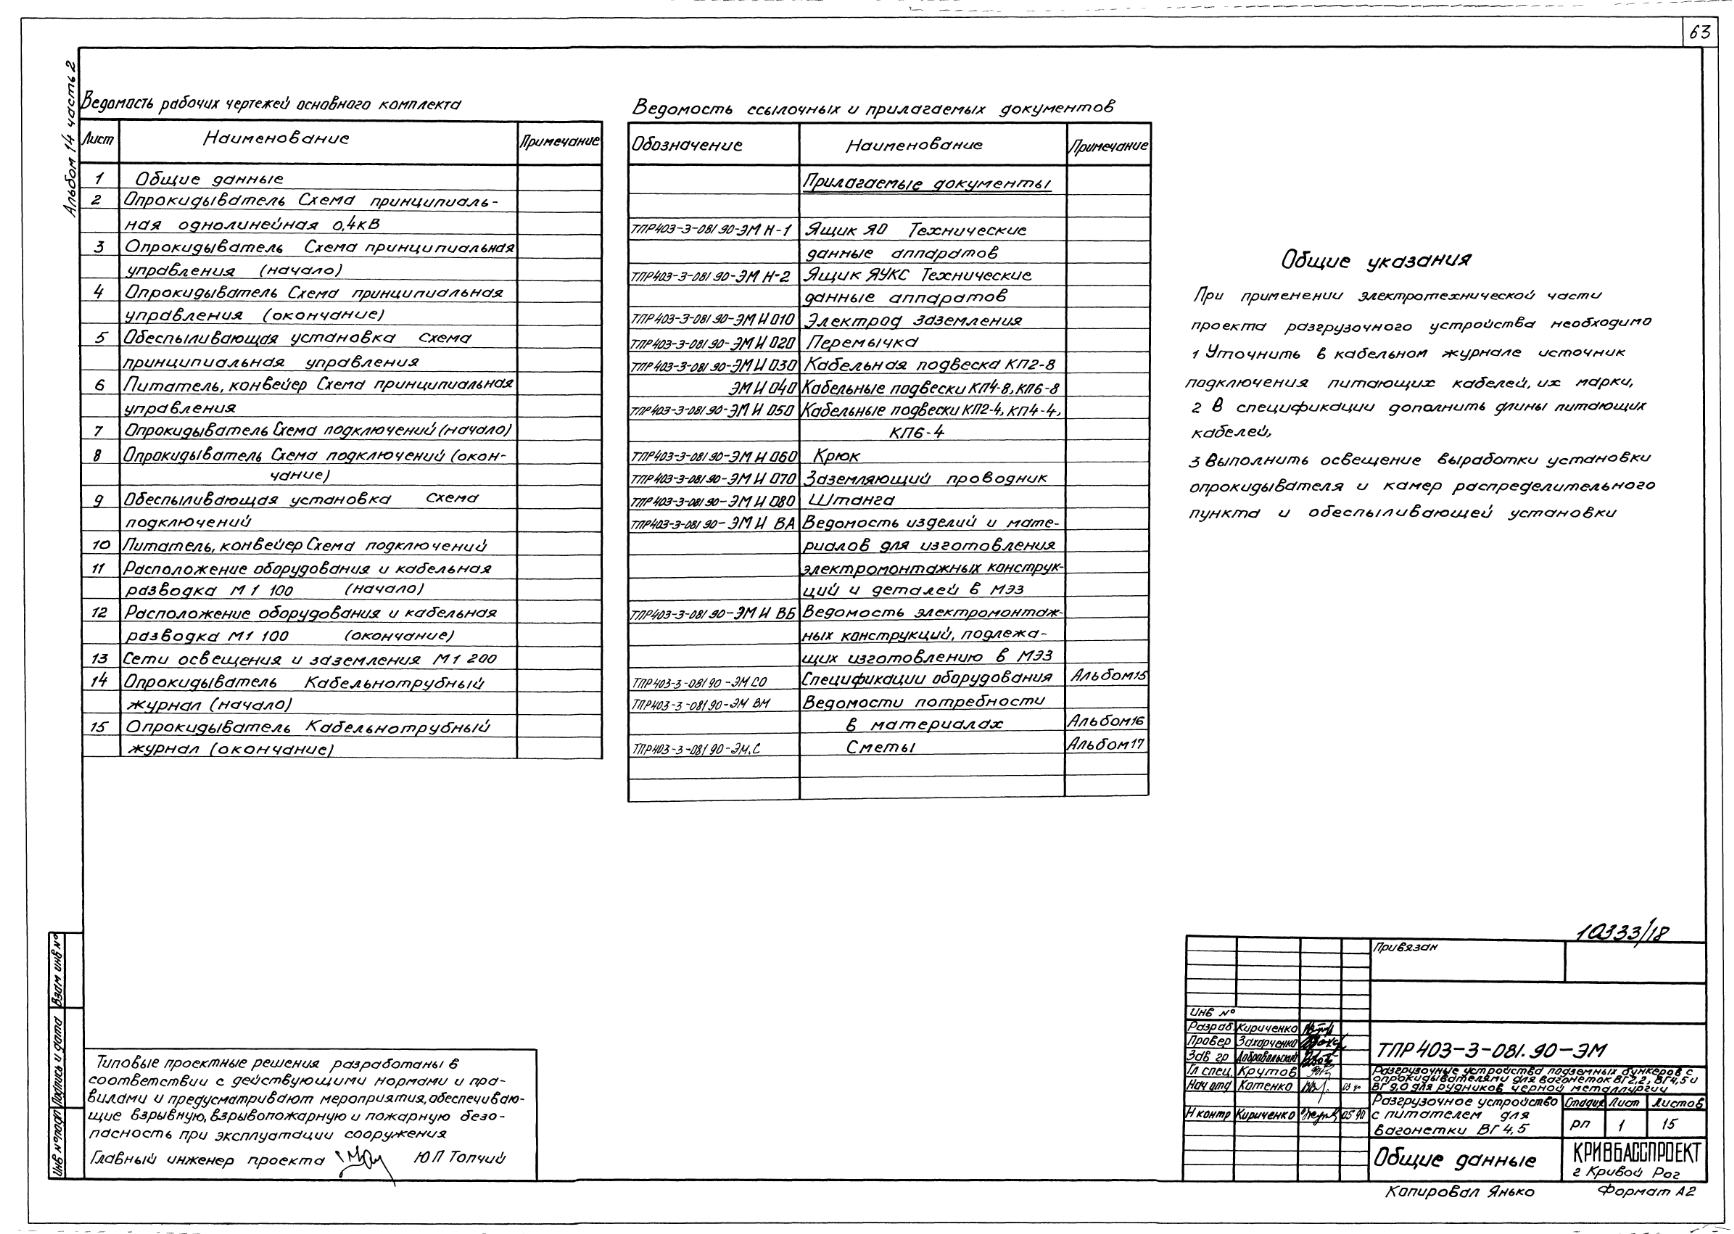 63
Альбом 14 часть 2
Ведомость рабочих чертежей основного комплекта
Лист Наименование Примечание
1 Общие данные
2 Опрокидыватель Схема принципиаль-
ная однолинейная 0,4кВ
3 Опрокидыватель Схема принципиальная
управления (начало)
4 Опрокидыватель Схема принципиальная
управления (окончание)
5 Обеспыливающая установка Схема
принципиальная управления
6 Питатель, конвейер Схема принципиальная
управления
7 Опрокидыватель Схема подключений (начало)
8 Опрокидыватель Схема подключений (окон-
чание)
9 Обеспыливающая установка Схема
подключений
10 Питатель, конвейер Схема подключений
11 Расположение оборудования и кабельная
разводка М 1 100 (начало)
12 Расположение оборудования и кабельная
разводка М1 100 (окончание)
13 Сети освещения и заземления М 1 200
14 Опрокидыватель Кабельнотрубный
журнал (начало)
15 Опрокидыватель Кабельнотрубный
журнал (окончание)
Ведомость ссылочных и прилагаемых документов
Обозначение Наименование Примечание
Прилагаемые документы
ТПР403-3-081.90-ЭМ Н-1 Ящик ЯО Технические
данные аппаратов
ТПР403-3-081.90-ЭМ Н-2 Ящик ЯУКС Технические
данные аппаратов
ТПР403-3-081.90-ЭМ И 010 Электрод заземления
ТПР403-3-081.90-ЭМ И 020 Перемычка
ТПР403-3-081.90-ЭМ И 030 Кабельная подвеска КП2-8
ЭМ И 040 Кабельные подвески КП4-8, КП6-8
ТПР403-3-081.90-ЭМ И 050 Кабельные подвески КП2-4, КП4-4,
КП6-4
ТПР403-3-081.90-ЭМ И 060 Крюк
ТПР403-3-081.90-ЭМ И 070 Заземляющий проводник
ТПР403-3-081.90-ЭМ И 080 Штанга
ТПР403-3-081.90-ЭМ И ВА Ведомость изделий и мате-
риалов для изготовления
электромонтажных конструк-
ций и деталей в МЭЗ
ТПР403-3-081.90-ЭМ И ВБ Ведомость электромонтаж-
ных конструкций, подлежа-
щих изготовлению в МЭЗ
ТПР403-3-081.90-ЭМ.СО Спецификации оборудования Альбом15
ТПР403-3-081.90-ЭМ ВМ Ведомости потребности
в материалах Альбом16
ТПР403-3-081.90-ЭМ.С Сметы Альбом17
Общие указания
При применении электротехнической части
проекта разгрузочного устройства необходимо
1 Уточнить в кабельном журнале источник
подключения питающих кабелей, их марки,
2 В спецификации дополнить длины питающих
кабелей,
3 Выполнить освещение выработки установки
опрокидывателя и камер распределительного
пункта и обеспыливающей установки
Взам инв №
Подпись и дата
Инв № подл
Типовые проектные решения разработаны в
соответствии с действующими нормами и пра-
вилами и предусматривают мероприятия, обеспечиваю-
щие взрывную, взрывопожарную и пожарную безо-
пасность при эксплуатации сооружения
Главный инженер проекта Ю П Топчий
10333/18
Привязан
Инв №
Разраб Кириченко
Провер Захарченко
Зав гр Добровольский
Гл спец Крутов
Нач отд Катенко
Н контр Кириченко 05 90
ТПР 403-3-081.90-ЭМ
Разгрузочные устройства подземных бункеров с
опрокидывателями для вагонеток ВГ2,2, ВГ4,5 и
ВГ9,0 для рудников черной металлургии
Разгрузочное устройство
с питателем для
вагонетки ВГ 4,5
Стадия Лист Листов
рп 1 15
Общие данные
КРИВБАССПРОЕКТ
г Кривой Рог
Копировал Янько Формат А2